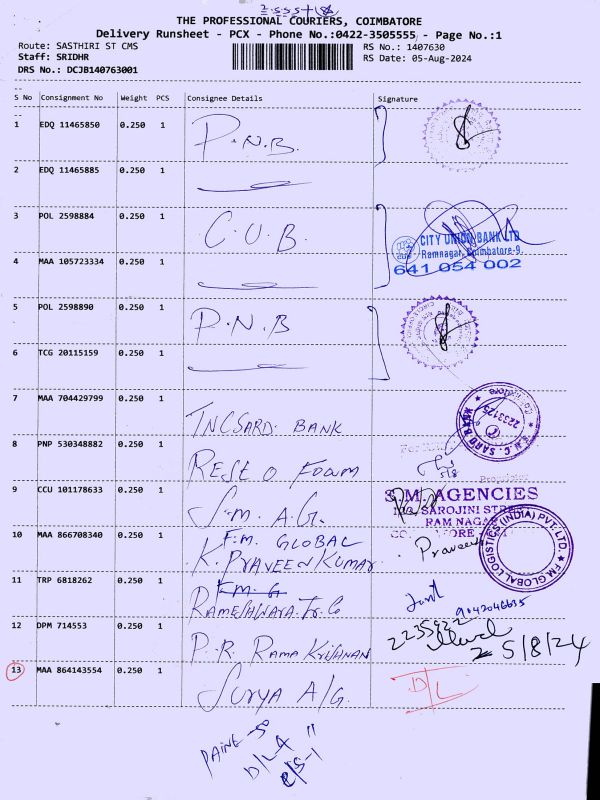 THE PROFESSIONAL COURIERS, COIMBATORE
Delivery Runsheet - PCX - Phone No.:0422-3505555 - Page No.:1
Route: SASTHIRI ST CMS
RS No.: 1407630
Staff: SRIDHR
RS Date: 05-Aug-2024
DRS No.: DCJB140763001
S No Consignment No Weight PCS Consignee Details Signature
1 EDQ 11465850 0.250 1 P.N.B.
2 EDQ 11465885 0.250 1
3 POL 2598884 0.250 1 C.U.B.
CITY UNION BANK LTD
Ramnagar, Coimbatore-9.
641 054 002
4 MAA 105723334 0.250 1
5 POL 2598890 0.250 1 P.N.B
6 TCG 20115159 0.250 1
7 MAA 704429799 0.250 1 TNCSARD. BANK
2233125
8 PNP 530348882 0.250 1 REST O FOAM
5/8
9 CCU 101178633 0.250 1 S.M. A.G.
S.M. AGENCIES
SAROJINI STREET
RAM NAGAR
10 MAA 866708340 0.250 1 F.M. GLOBAL
K. PRAVEEN KUMAR
Praveen
FM GLOBAL LOGISTICS (INDIA) PVT. LTD.
11 TRP 6818262 0.250 1 F.M. G
RAMESHWARA. Tr. Co
9042046635
12 DPM 714553 0.250 1 P.R. RAMA KRISHNAN
5/8/24
13 MAA 864143554 0.250 1 SURYA A/G.
D/L
D/L-4 "